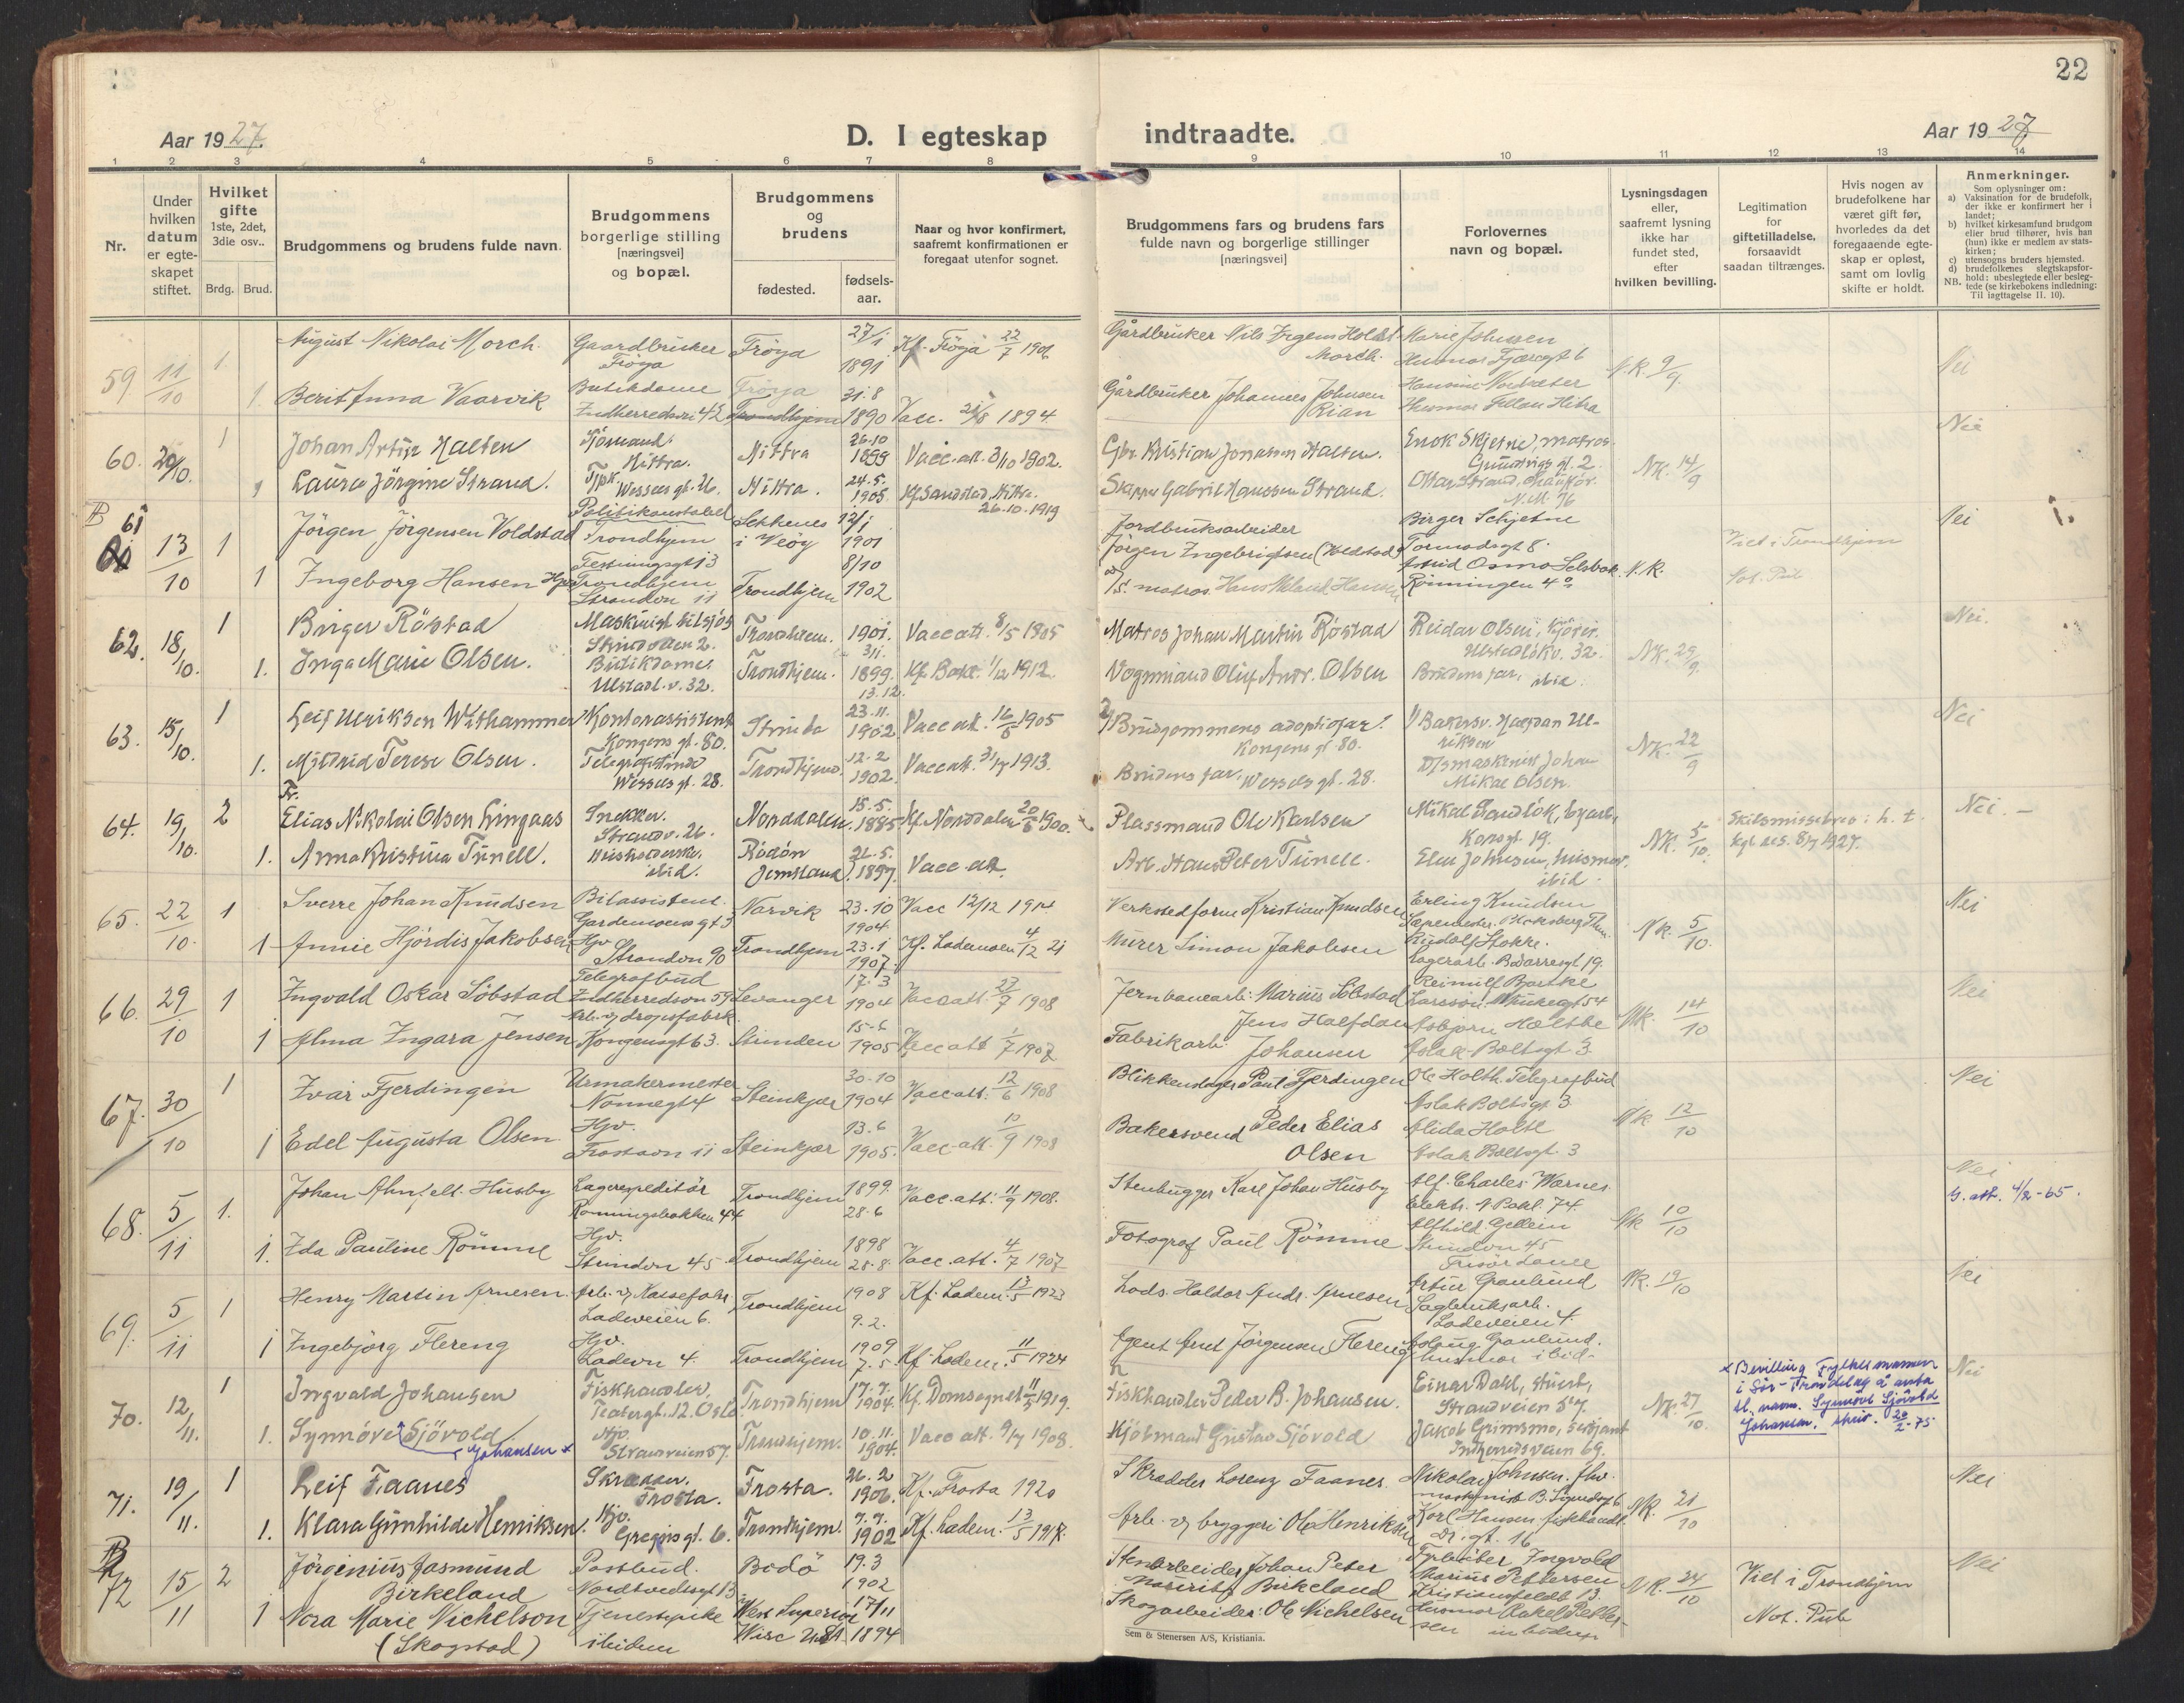 22
Aar 1927.
D. I egteskap
indtraadte.
Aar 1927
1 2 3 4 5 6 7 8 9 10 11 12 13 14
Nr.
Under hvilken datum er egteskapet stiftet.
Hvilket gifte 1ste, 2det, 3die osv..
Brdg. Brud.
Brudgommens og brudens fulde navn.
Brudgommens borgerlige stilling [næringsvei] og bopæl.
Brudgommens og brudens
fødested. fødselsaar.
Naar og hvor konfirmert, saafremt konfirmationen er foregaat utenfor sognet.
Brudgommens fars og brudens fars fulde navn og borgerlige stillinger [næringsvei]
Forlovernes navn og bopæl.
Lysningsdagen eller, saafremt lysning ikke har fundet sted, efter hvilken bevilling.
Legitimation for giftetilladelse, forsaavidt saadan tiltrænges.
Hvis nogen av brudefolkene har været gift før, hvorledes da det foregaaende egteskap er opløst, samt om lovlig skifte er holdt.
Anmerkninger.
Som oplysninger om:
a) Vaksination for de brudefolk, der ikke er konfirmert her i landet;
b) hvilket kirkesamfund brudgom eller brud tilhører, hvis han (hun) ikke er medlem av statskirken;
c) utensogns bruders hjemsted.
d) brudefolkenes slegtskapsforhold: ubeslegtede eller beslegtede (se kirkebokens indledning: Til iagttagelse II. 10).
NB.
59. 11/10 1. August Nikolai Morch. Gaardbruker Fröya Fröya 27/1 1891 Kf. Fröya 22/7 1906 Gårdbruker Nils Holst Morch. Marie Johnsen Husmor Fjæregt 6 N.K. 9/9. Nei
1. Berit Anna Vaarvik Butikdame Indherredsvei 42 Fröya Trondhjem 31.8 1890 Vacc. 1894 Gårdbruker Johannes Johnsen Rian Husmor Fillan Hitra
60. 20/10. 1 Johan Artur Halten Hittra. Hittra 26.10 1899 Vacc. att. 3/10 1902. Gbr. Kristian Jonassen Halten. Enok Skjetne, matros. gt. 2. NK. 14/9 Nei
1 Laura Jörgine Strand. Tjpk. Wessels gt. 26. Hittra. 24.5. 1905 Kf. Sandstad, Hittra. 26.10.1919 Skipper Gabriel Hanssen Strand. Ottar Strand, N.M. 76
B 61 13/10 1 Jörgen Jörgensen Voldstad Politikonstabel Trondhjem Festningsgt 13 i Veöy 12/1 1901 Jordbruksarbeider Jörgen Ingebrigtsen (Voldstad) Birger Schjetne Tormodsgt 8. N.K. Viet i Trondhjem Not. Pub Nei
1 Ingeborg Hansen Hjv. Trondhjem Stranden 11 Trondhjem 8/10 1902 matros Hans Hansen Astrid Osmo Selsbak Rönningen 4
62. 18/10. 1 Birger Röstad Maskinist tilsjös 2. Trondhjem. 1901. Vacc att. 8/5 1905 Matros Johan Martin Röstad Reidar Olsen, kjörer. Ulstadlökv. 32. NK. 29/9. Nei.
1. Inga Marie Olsen. Butikdame Ulstadl. v. 32. Trondhjem. 1899. 13.12. Kf. Bakl. 1/12 1912. Vognmand Oluf Andr. Olsen Brudens far, ibid.
63. 15/10. 1 Leif Ulriksen Withammer Kontorassistent Kongens gt. 80. Strinda 23.11. 1902 Vacc att. 16/6 1905 2) Brudgommens adoptivfar! Kongens gt. 80. 1) Bakersv. Halfdan Ulriksen NK. 22/9 Nei
1. Mildrid Terese Olsen. Telegrafistinde Wessels gt. 28. Trondhjem. 12.2 1902. Vacc att. 3/7 1913. Brudens far, Wessels gt. 28. D/smaskinist Johan Mikal Olsen.
64. 19/10. 2 Fr. Elias Nikolai Olsen Lingaas Snekker. Strandv. 26. Norddalen. 15.5. 1885 Kf. Norddalen 20/6 1900. Plassmand Ole Karlsen Mikal Sandlök, Kongt 19. NK. 5/10. Skilsmissebrev: h. t. kgl. res. 8/7 1927. Nei. -
1. Anna Kristina Tunell. ibid. Rödön Jemtland. 26.5. 1897. Vacc. att. Arb. Hans Peter Tunell. Elen Johnsen, husmor. ibid.
65. 22/10. 1 Sverre Johan Knudsen Bilassistent. Gardemoensgt 3 Narvik 23.10 1904 Vacc 12/12 1914 Verkstedform Kristian Knudsen Erling Knudsen NK. 5/10. Nei
1 Annie Hjördis Jakobsen Hjv Strandvn 90 Trondhjem 23.1 1907. Kf. Lademoen 4/12 21 Murer Simon Jakobsen Rudolf Stokke. Lagerarb. 19.
66. 29/10 1 Ingvald Oskar Söbstad Telegrafbud Indherredsvn 59 Levanger 17.3 1904 Vacc att. 27/7 1908 Jernbanearb. Marius Söbstad Reinulf Bartke Larsson. 54 NK. 14/10 Nei
1 Alma Ingara Jensen Kongensgt 63. Strinden 15-6 1905 Vacc att 1/7 1907 Fabrikarb. Jens Halfdan Johansen Asbjørn Holthe Aslak Boltsgt 3.
67. 30/10 1 Ivar Fjerdingen Urmakermester Nonnegt 4 Steinkjær 30-10 1904 Vacc att. 12/6 1908 Blikkenslager Paul Fjerdingen Ole Holth. Telegrafbud Aslak Boltsgt. 3. NK 12/10 Nei
1 Edel Augusta Olsen. Hjv. Frostavn 11 Steinkjær 13.6 1905. Vacc. att. 10/9 1908 Bakersvend Peder Elias Olsen Alida Holth Aslak Boltsgt. 3
68. 5/11 1. Johan Ahnfelt. Husby Lagerexpeditör Rönningsbakken 44 Trondhjem 1899. 28.6 Vacc. att. 11/9 1908. Stenhugger Karl Johan Husby Alf. Charles Warnes Elektr. N Bakl. 74. NK 10/10 Nei G. att. 4/2-65.
1. Ida Pauline Römme Hjv. Strindvn 45. Trondhjem 1898 28.8. Vacc. att. 4/7 1907 Fotograf Paul Römme Alfhild Gellein Strindvn 45 Frisördame
69. 5/11 1 Henry Martin Arnesen. Arb. v/ Ladeveien 6. Trondhjem 1908 9.2. Kf. Ladem. 13/5 1923 Lods. Haldor Andr. Arnesen Artur Granlund Sagbruksarb. Ladeveien 4. NK. 19/10 Nei
1 Ingebjörg Flereng Hjv. Ladevn 4. Trondhjem 1909 7.5 Kf. Ladem. 11/5 1924 Agent Arnt Jörgensen Flereng Aslaug Granlund. husmor ibid.
70. 12/11. 1 Ingvald Johansen Fiskhandler, Teatergt. 12. Oslo Trondhjem 17.7. 1904. Kf. Domsognet 11/5 1919. Fiskhandler Peder B. Johansen. Einar Dahl, stuert, Strandveien 57. NK. 27/10. Nei
x Bevilling Fylkesmannen i Sör-Tröndelag å anta sl. navn. Synnöve Sjövold Johansen. 20/2-75
1. Synnöve Sjövold Johansen x Hjv. Strandveien 57. Trondhjem. 10.11. 1904. Vacc att. 9/7 1908. Kjöbmand Gustav Sjövold Jakob Grimsmo, sersjant Indherredsveien 69.
71. 19/11. 1 Leif Faanes Skrædder. Frosta. Frosta. 26.2 1906. Kf. Frosta 1920 Skrædder Lorenz Faanes. Nikolai Johnsen. fhv. maskinist NK. 21/10 Nei
1. Klara Gunhilde Henriksen. Hjv. Gregus gt. 6. Trondhjem. 7.7. 1902 Kf. Ladem. 13/5 1917. Arb. v/ bryggeri Ole Henriksen Karl Hansen fiskhandl. Dr. gt. 16
B 72 15/11 2 Jörginius Jasmund Birkeland Postbud. Nordtvedtsgt 13 Bodö 19.3 1902 Stenarbeider Johan Peter Birkeland Fyrböter Ingvald Marius Pettersen Kristiansfeldt 13. NK. 24/10 Viet i Trondhjem Not. Pub Nei
1 Nora Marie Nichelson (Skogstad) Tjenestepike ibidem West Superior Wisc USA. 17/11 1894 Skogarbeider: Ole Nichelsen Husmor Rakel Pettersen ibidem
Sem & Stenersen A/S, Kristiania.